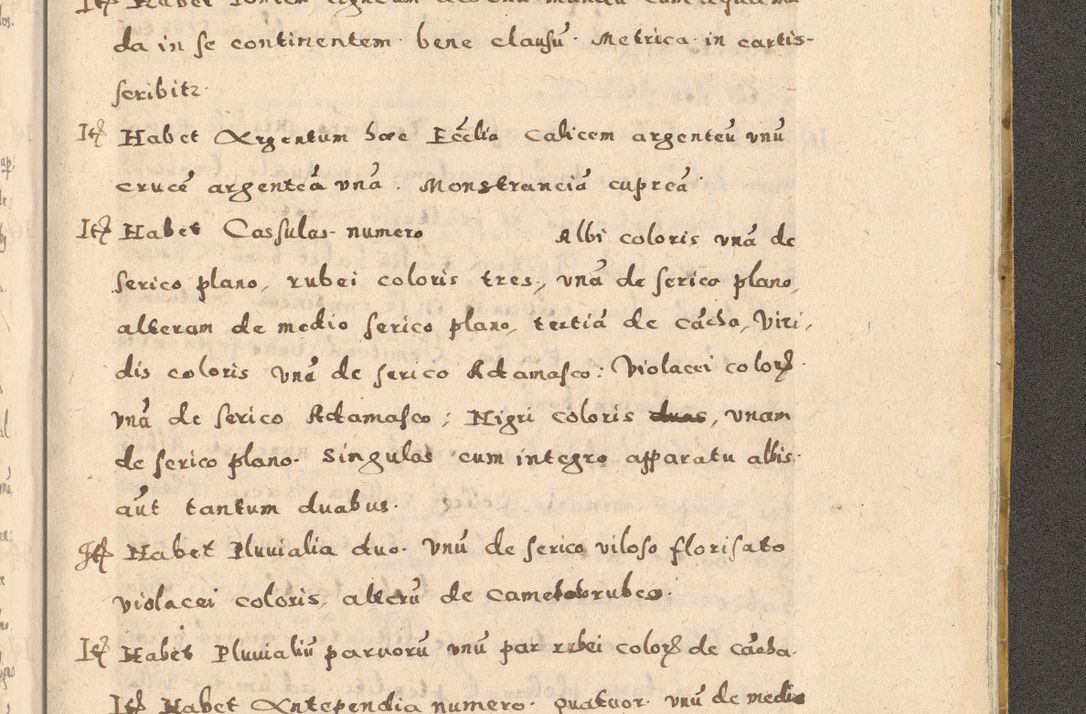 Itē Habet
da in se continentem bene clausū. Metrica in cartis-
scribitr.
Itē Habet Argentum hæc Eccliā Calicem argenteū vnū
crucē argenteā vnā. Monstranciā cupreā.
Itē Habet Cassulas numero Albi coloris vnā de
serico plano, rubei coloris tres, vnā de serico plano,
alteram de medio serico plano, tertiā de cācha, Viri-
dis coloris vnā de serico Adamasco: Violacei colorꝭ
vnā de serico Adamasco; Nigri coloris duas, vnam
de serico plano. Singulas cum integro apparatu albis.
aūt tantum duabus.
Itē Habet Pluuialia duo. Vnū de serico viloso florisato
violacei coloris, alterū de rubeo.
Itē Habet Pluuialiū paruorū vnū par rubei colorꝭ de cācha.
Itē Habet Antependia numero. quatuor. vnū de medio